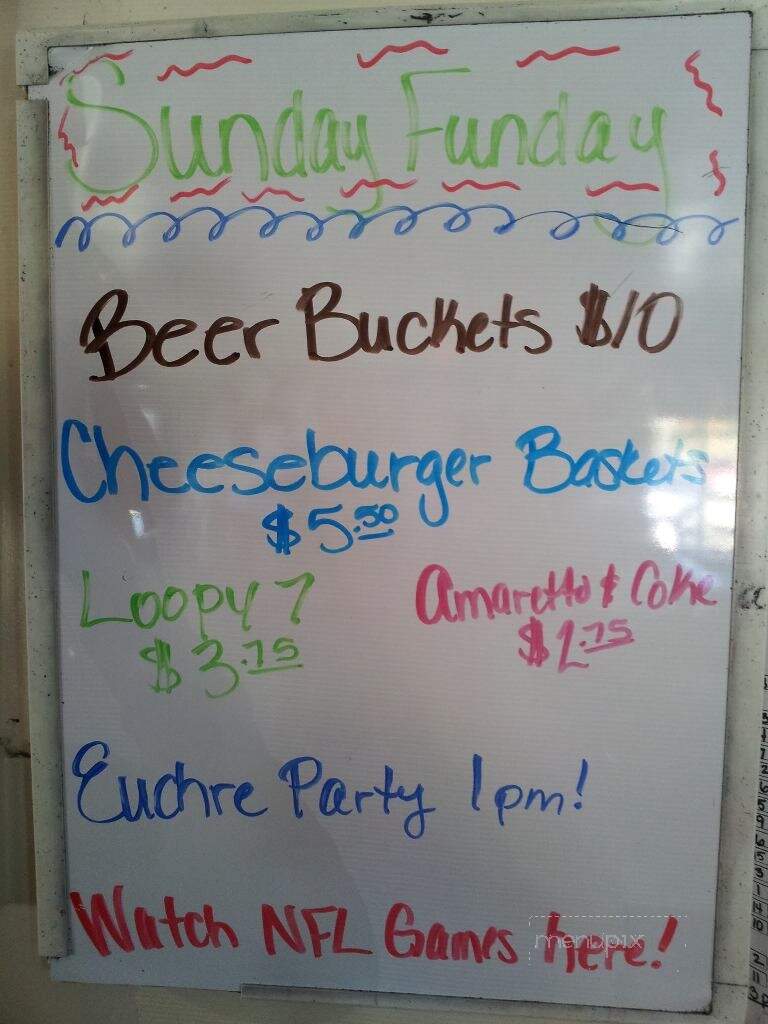 Sunday Funday
Beer Buckets $10
Cheeseburger Baskets
$5.50
Loopy 7
$3.75
Amaretto & Coke
$2.75
Euchre Party 1pm!
Watch NFL Games here!
menupix